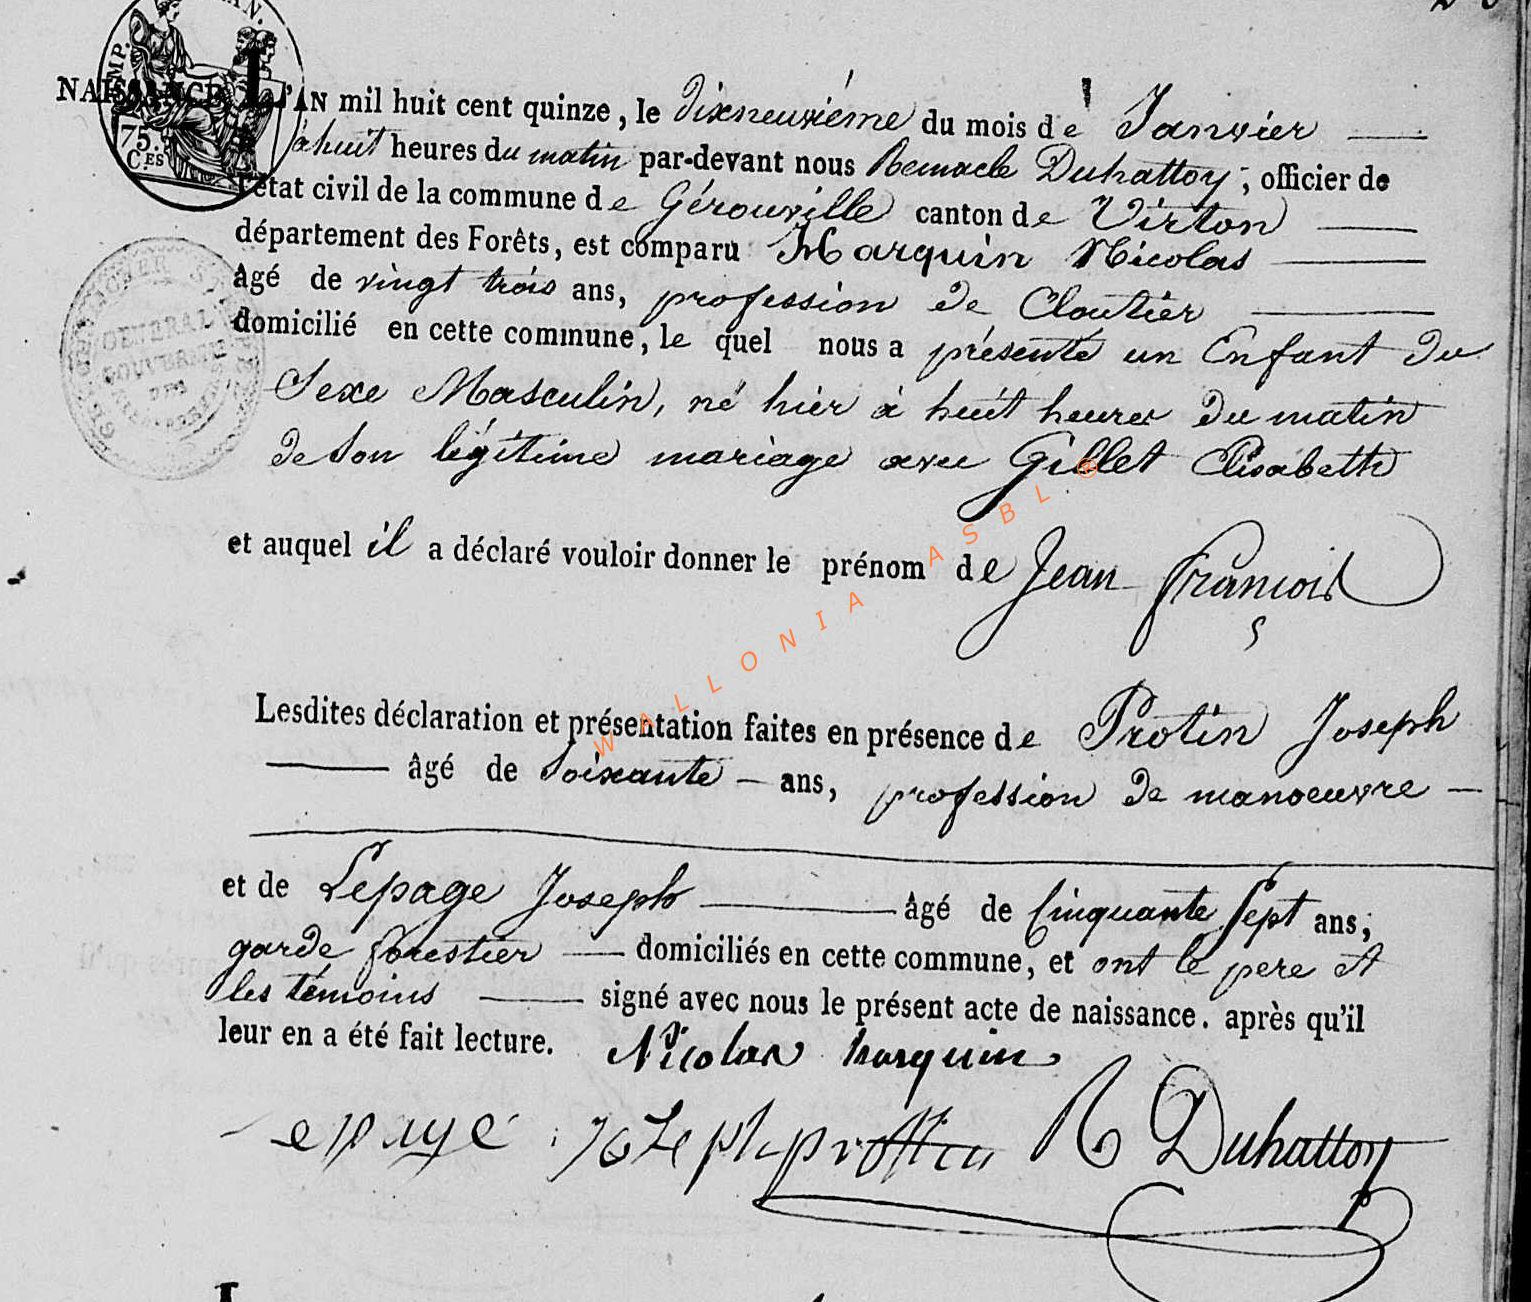 NAISSANCE L'AN mil huit cent quinze, le dixneuvième du mois de Janvier
à huit heures du matin par-devant nous Remacle Duhattoy, officier de
l'état civil de la commune de Gérouville canton de Virton
département des Forêts, est comparu Marquin Nicolas
âgé de vingt trois ans, profession de Cloutier
domicilié en cette commune, le quel nous a présenté un Enfant du
Sexe Masculin, né hier à huit heures du matin
de son légitime mariage avec Gillet Elisabeth
et auquel il a déclaré vouloir donner le prénom de Jean françois
Lesdites déclaration et présentation faites en présence de Protin Joseph
âgé de soixante ans, profession de manoeuvre
et de Lepage Joseph âgé de Cinquante Sept ans,
garde forestier domiciliés en cette commune, et ont le pere et
les témoins signé avec nous le présent acte de naissance. après qu'il
leur en a été fait lecture. Nicolas marquin
epage R Duhattoy
75.
C.ES
WALLONIA ASBL ®